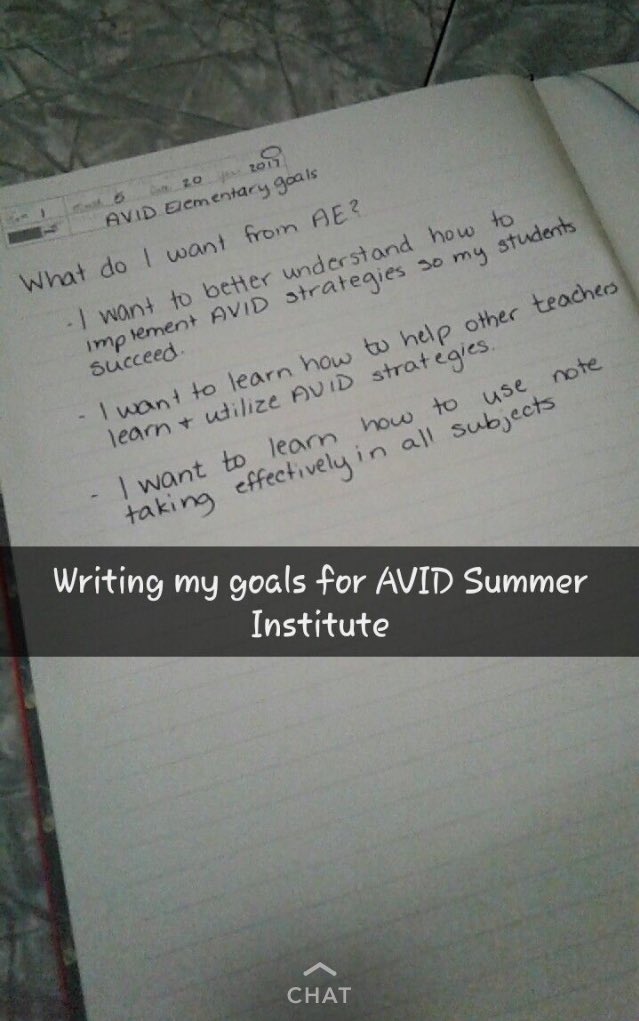 1 6 20 2017
AVID Elementary goals
What do I want from AE?
- I want to better understand how to
implement AVID strategies so my students
succeed.
- I want to learn how to help other teachers
learn + utilize AVID strategies.
- I want to learn how to use note
taking effectively in all subjects
Writing my goals for AVID Summer
Institute
CHAT